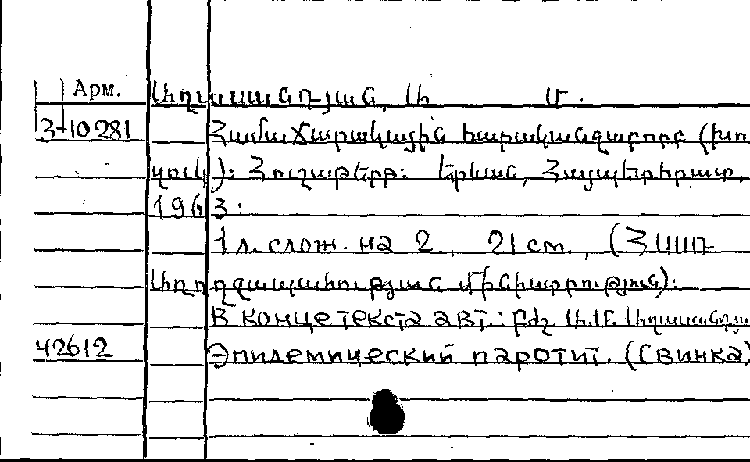 Арм.
Ալեքսանդրյան, Ա Մ.
3-10281 Համաճարակային հարականգաբորբ (խո
զուկ): Հուշաթերթ: Երևան, Հայպետհրատ,
1963:
1 л. слож. на 2, 21 см., (ՀՍՍՌ
առողջապահության մինիստրություն):
В конце текста авт.: բժշ. Ա.Մ. Ալեքսանդրյա
42612 Эпидемический паротит. (Свинка)